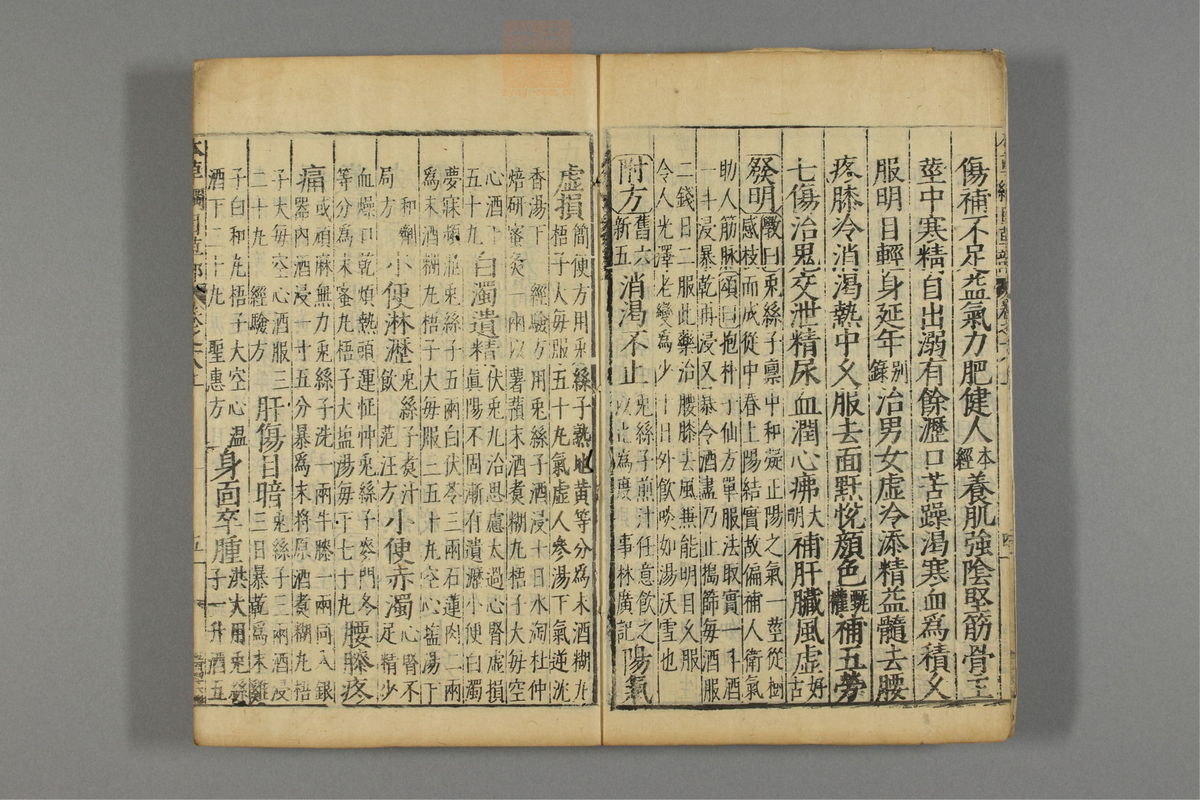 傷補不足益氣力肥健人本經養肌強陰堅筋骨主
莖中寒精自出溺有餘瀝口苦躁渴寒血為積久
服明目輕身延年別錄治男女虛冷添精益髓去腰
疼膝冷消渴熱中久服去面䵟悅顏色甄權補五勞
七傷治鬼交泄精尿血潤心肺大明補肝臟風虛好古
發明斆曰兎絲子稟中和凝正陽之氣一莖從樹
感枝而成從中春上陽結實故偏補人衛氣
助人筋脉頌曰抱朴子仙方單服法取實一斗酒
一斗浸暴乾再浸又暴令酒盡乃止搗篩每酒服
二錢日二服此藥治腰膝去風兼能明目久服
令人光澤老變為少十日外飲啖如湯沃雪也
附方舊六新五消渴不止兎絲子煎汁任意飲之
以止為度事林廣記陽氣
虛損簡便方用兎絲子熟地黃等分為末酒糊丸
梧子大每服五十丸氣虛人參湯下氣逆沈
香湯下經驗方用兎絲子酒浸十日水淘杜仲
焙研蜜炙一兩以薯蕷末酒煑糊丸梧子大每空
心酒下五十丸白濁遺精伏兎丸治思慮太過心腎虛損
真陽不固漸有遺瀝小便白濁
夢寐頻泄兎絲子五兩白伏苓三兩石蓮肉二兩
為末酒糊丸梧子大每服三五十丸空心塩湯下
和劑局方小便淋瀝兎絲子煑汁飲范汪方小便赤濁心腎不足精少
血燥口乾煩熱頭運怔忡兎絲子麥門冬
等分為末蜜丸梧子大塩湯每下七十丸腰膝疼
痛或頑麻無力兎絲子洗一兩牛膝一兩同入銀
器內酒浸一寸五分暴為末將原酒煑糊丸梧
子大每空心酒服三二十丸經驗方肝傷目暗兎絲子三兩酒浸
三日暴乾為末雞
子白和丸梧子大空心溫酒下二十丸聖惠方身面卒腫洪大用兎絲
子一升酒五